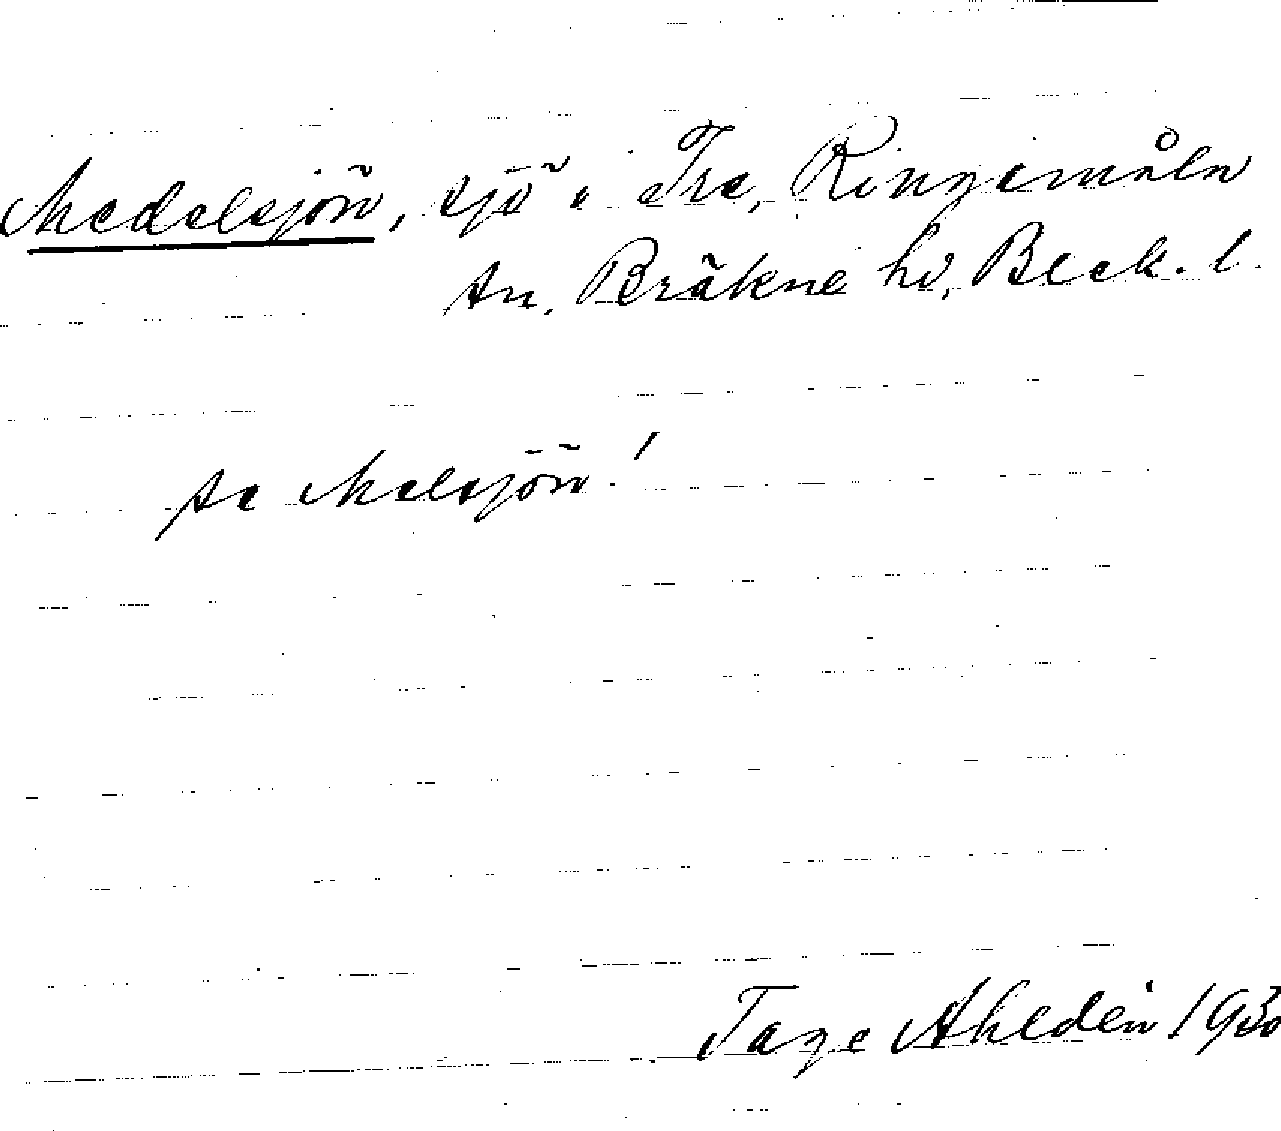 Medelsjön, sjö i Tre, Ringamåla
sn, Bräkne hd, Bleck. l.
se Melsjön!
Tage Ahldén 1930